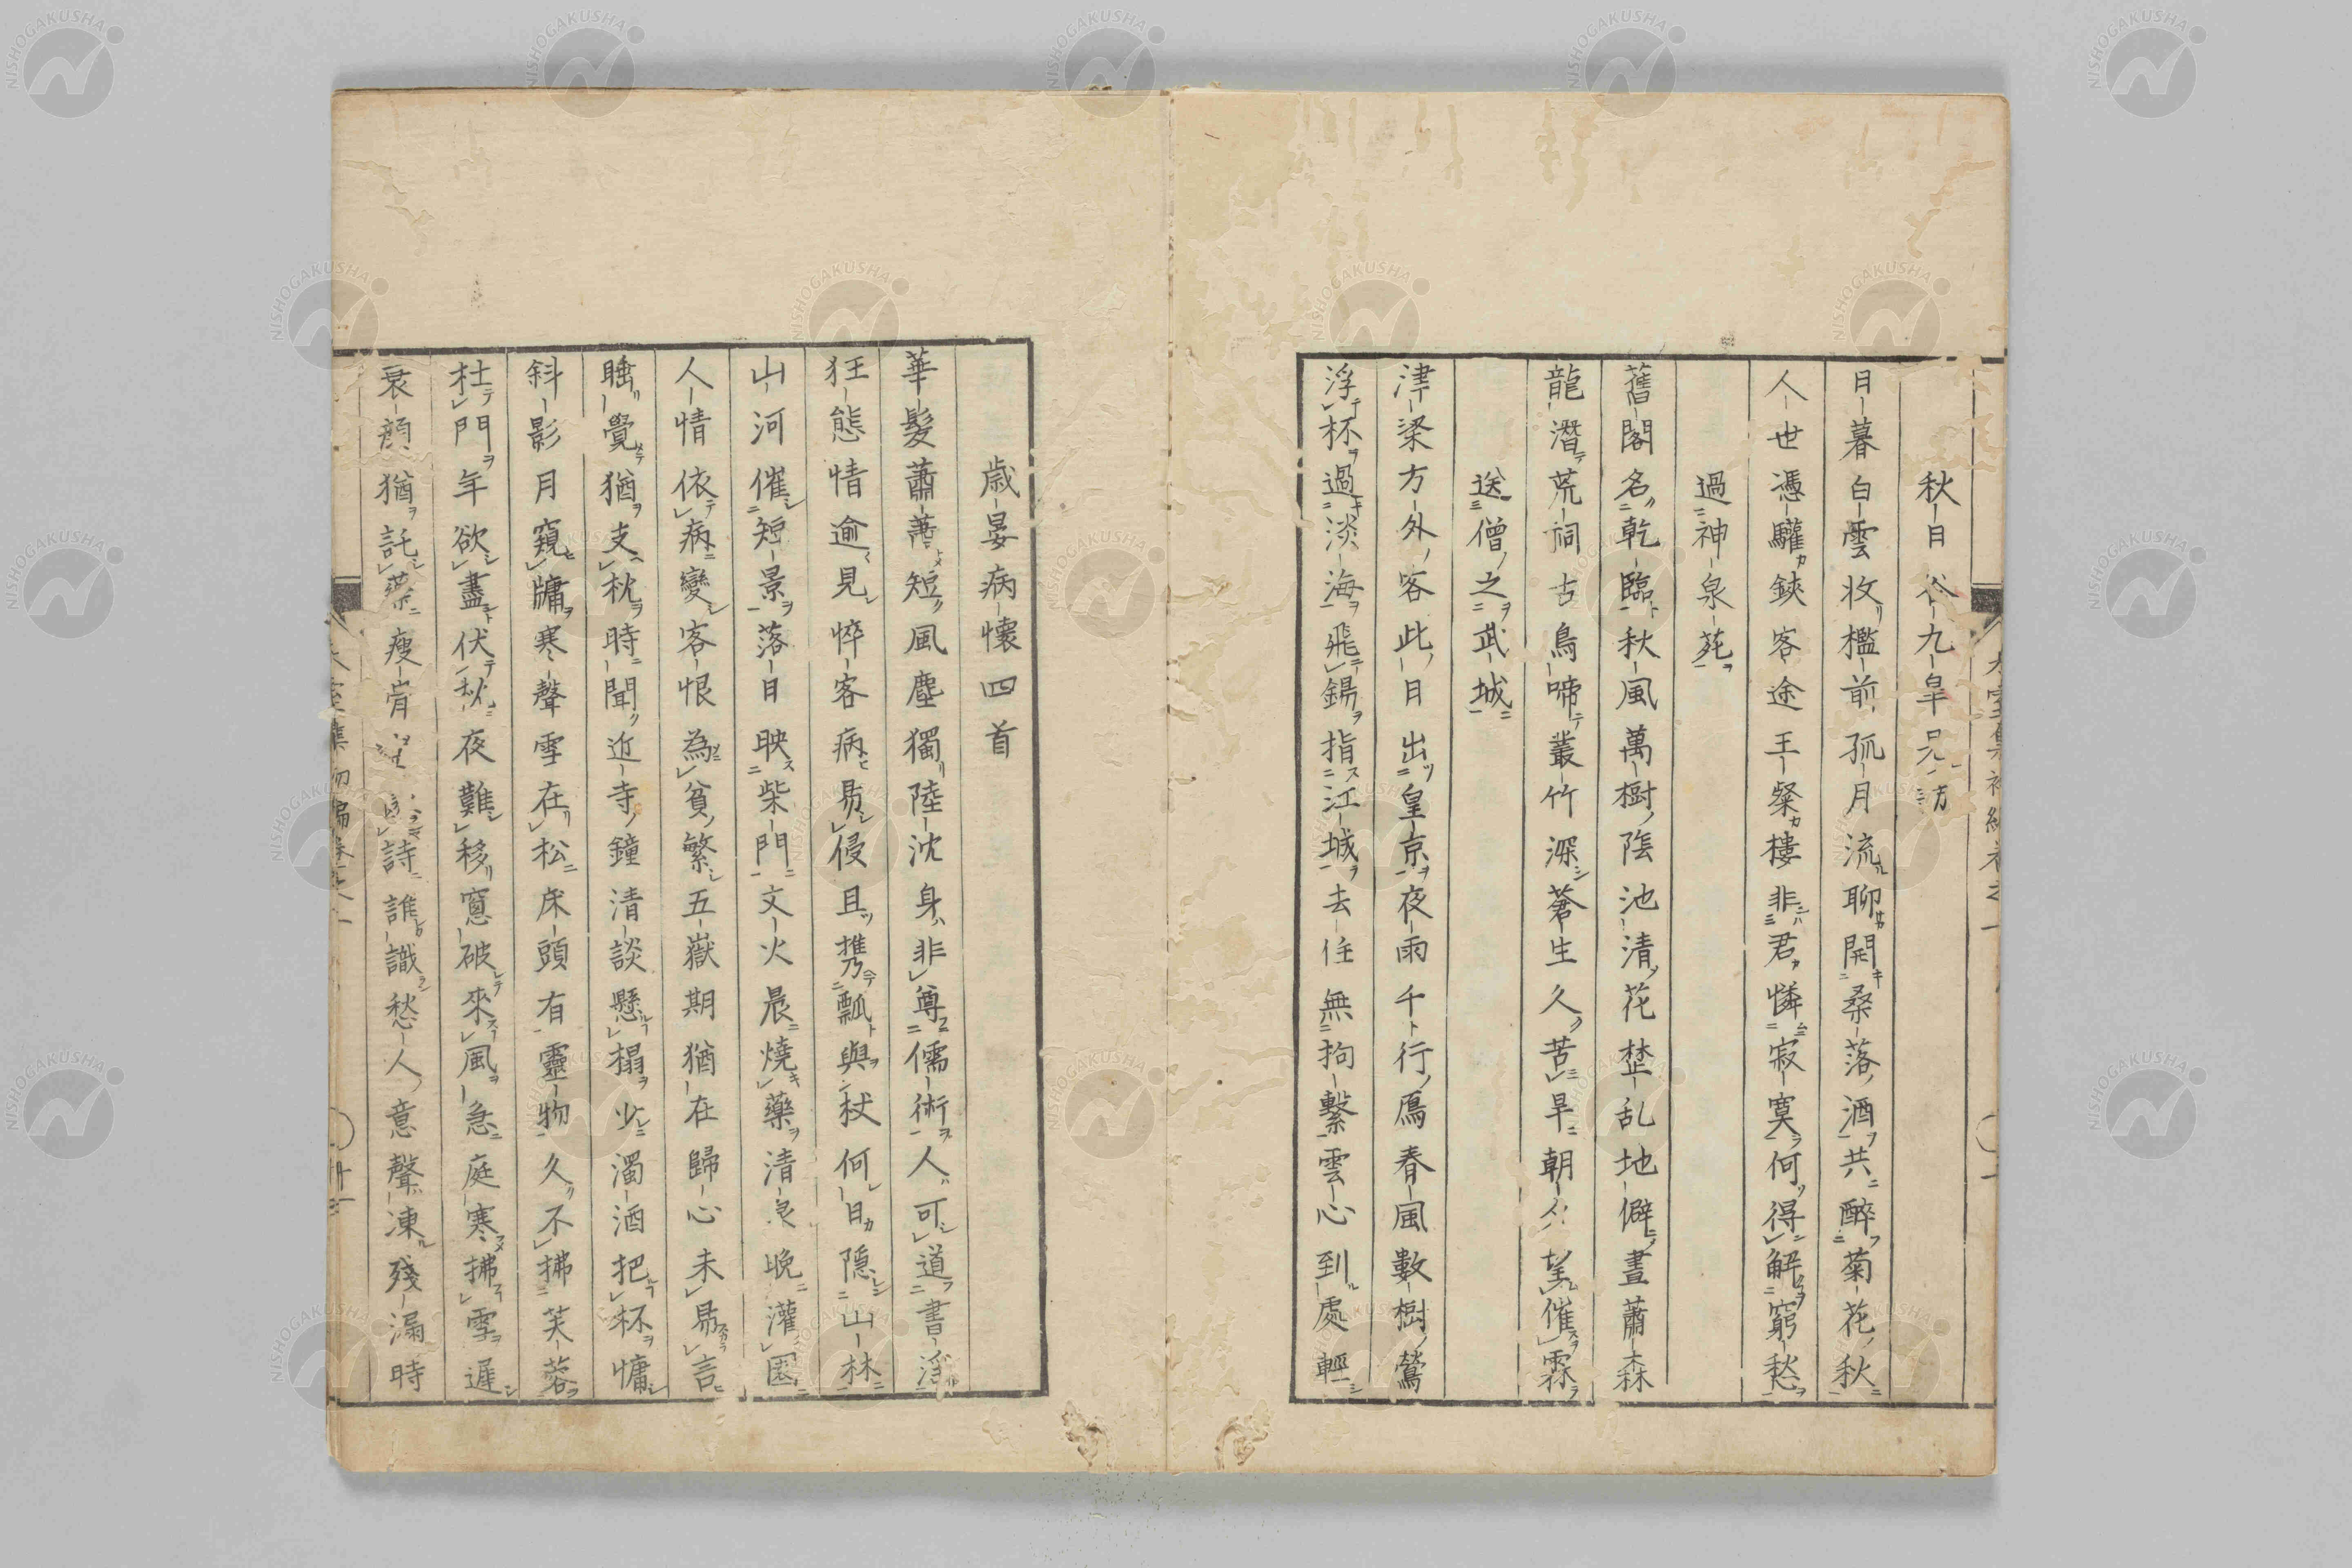 秋日谷九皐兄訪
日暮白雲收檻前孤月流聊開桑落酒共醉菊花秋
人世憑驩鋏客途王粲樓非君憐寂寞何得解窮愁
過神泉苑
舊閣名乾臨秋風萬樹陰池清花埜乱地僻晝蕭森
龍潛荒祠古鳥啼叢竹深蒼生久苦旱朝夕望催霖
送僧之武城
津梁方外客此日出皇京夜雨千行鴈春風數樹鶯
浮杯過淡海飛錫指江城去住無拘繫雲心到處輕
歳晏病懷四首
華髮蕭蕭短風塵獨陸沈身非尊儒術人可道書淫
狂態情逾見悴客病易侵且携瓢與杖何日隱山林
山河催短景落日映柴門文火晨燒藥清泉晩灌園
人情依病變客恨為貧繁五嶽期猶在歸心未易言
睡覺猶支枕時聞近寺鐘清談懸榻少濁酒把杯慵
斜影月窺牖寒聲雪在松床頭有靈物久不拂芙蓉
杜門年欲盡伏秋夜難移窓破來風急庭寒拂雪遲
衰顔猶託藥瘦骨詩誰識愁人意聲凍殘漏時